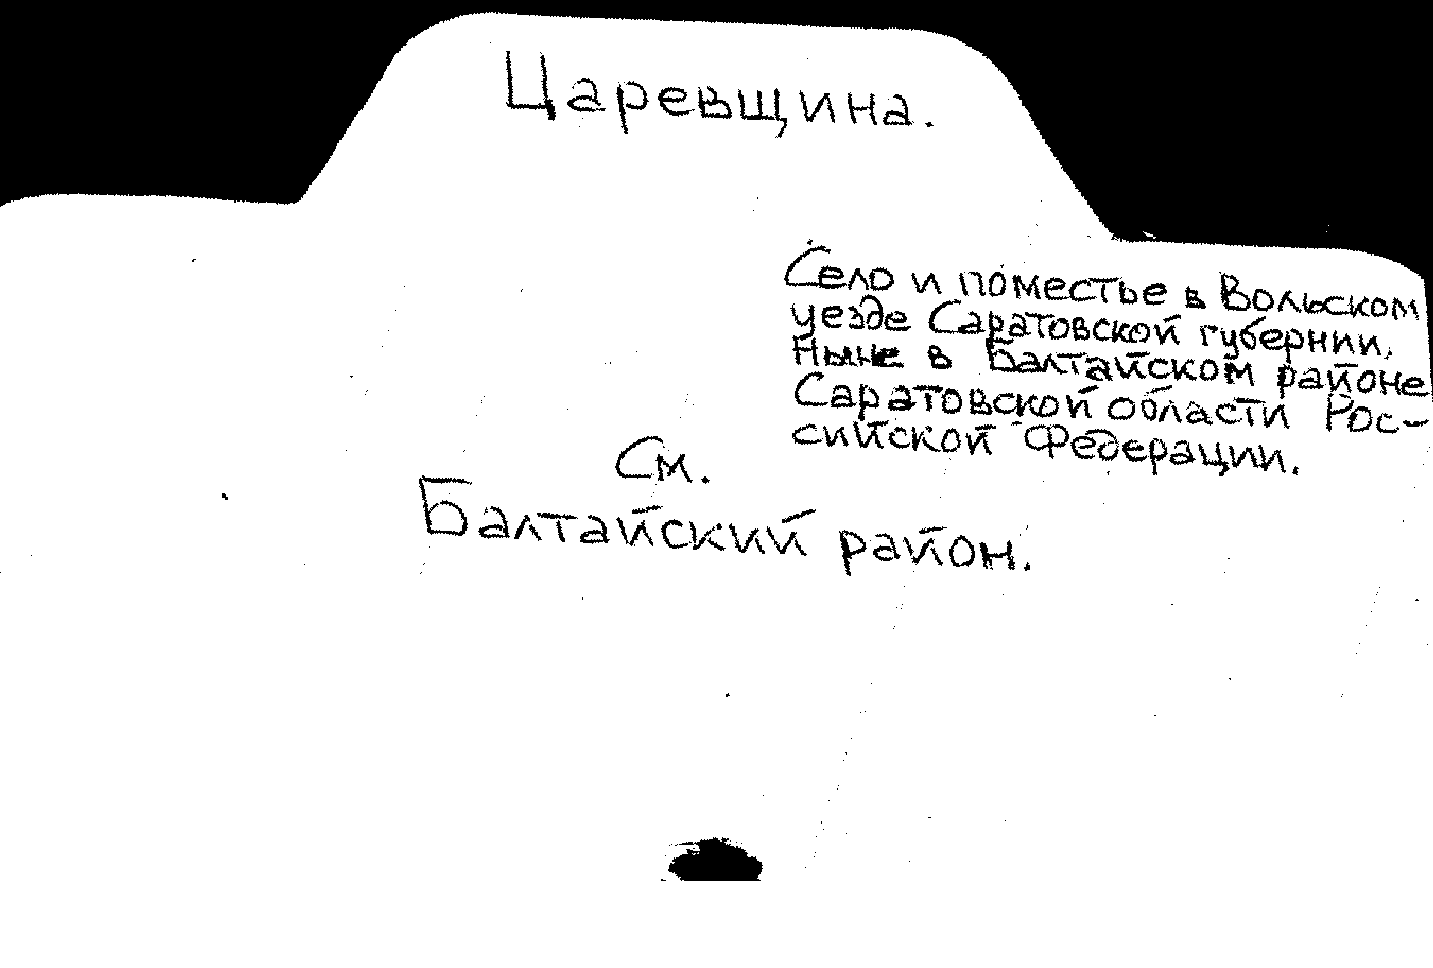 Царевщина.
Село и поместье в Вольском
уезде Саратовской губернии.
Ныне в Балтайском районе
Саратовской области Рос-
сийской Федерации.
См.
Балтайский район.